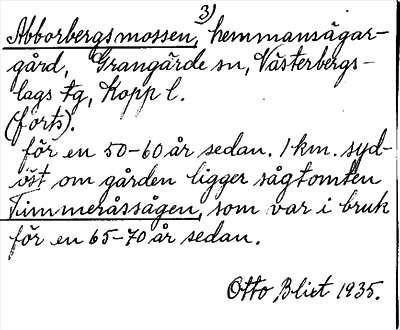 3)
Abborbergsmossen, hemmansägar-
gård, Grangärde sn, Västerbergs-
lags tg, Kopp l.
(forts).
för en 50-60 år sedan. 1 km. syd-
öst om gården ligger sågtomten
Timmeråssågen, som var i bruk
för en 65-70 år sedan.
Otto Blixt 1935.